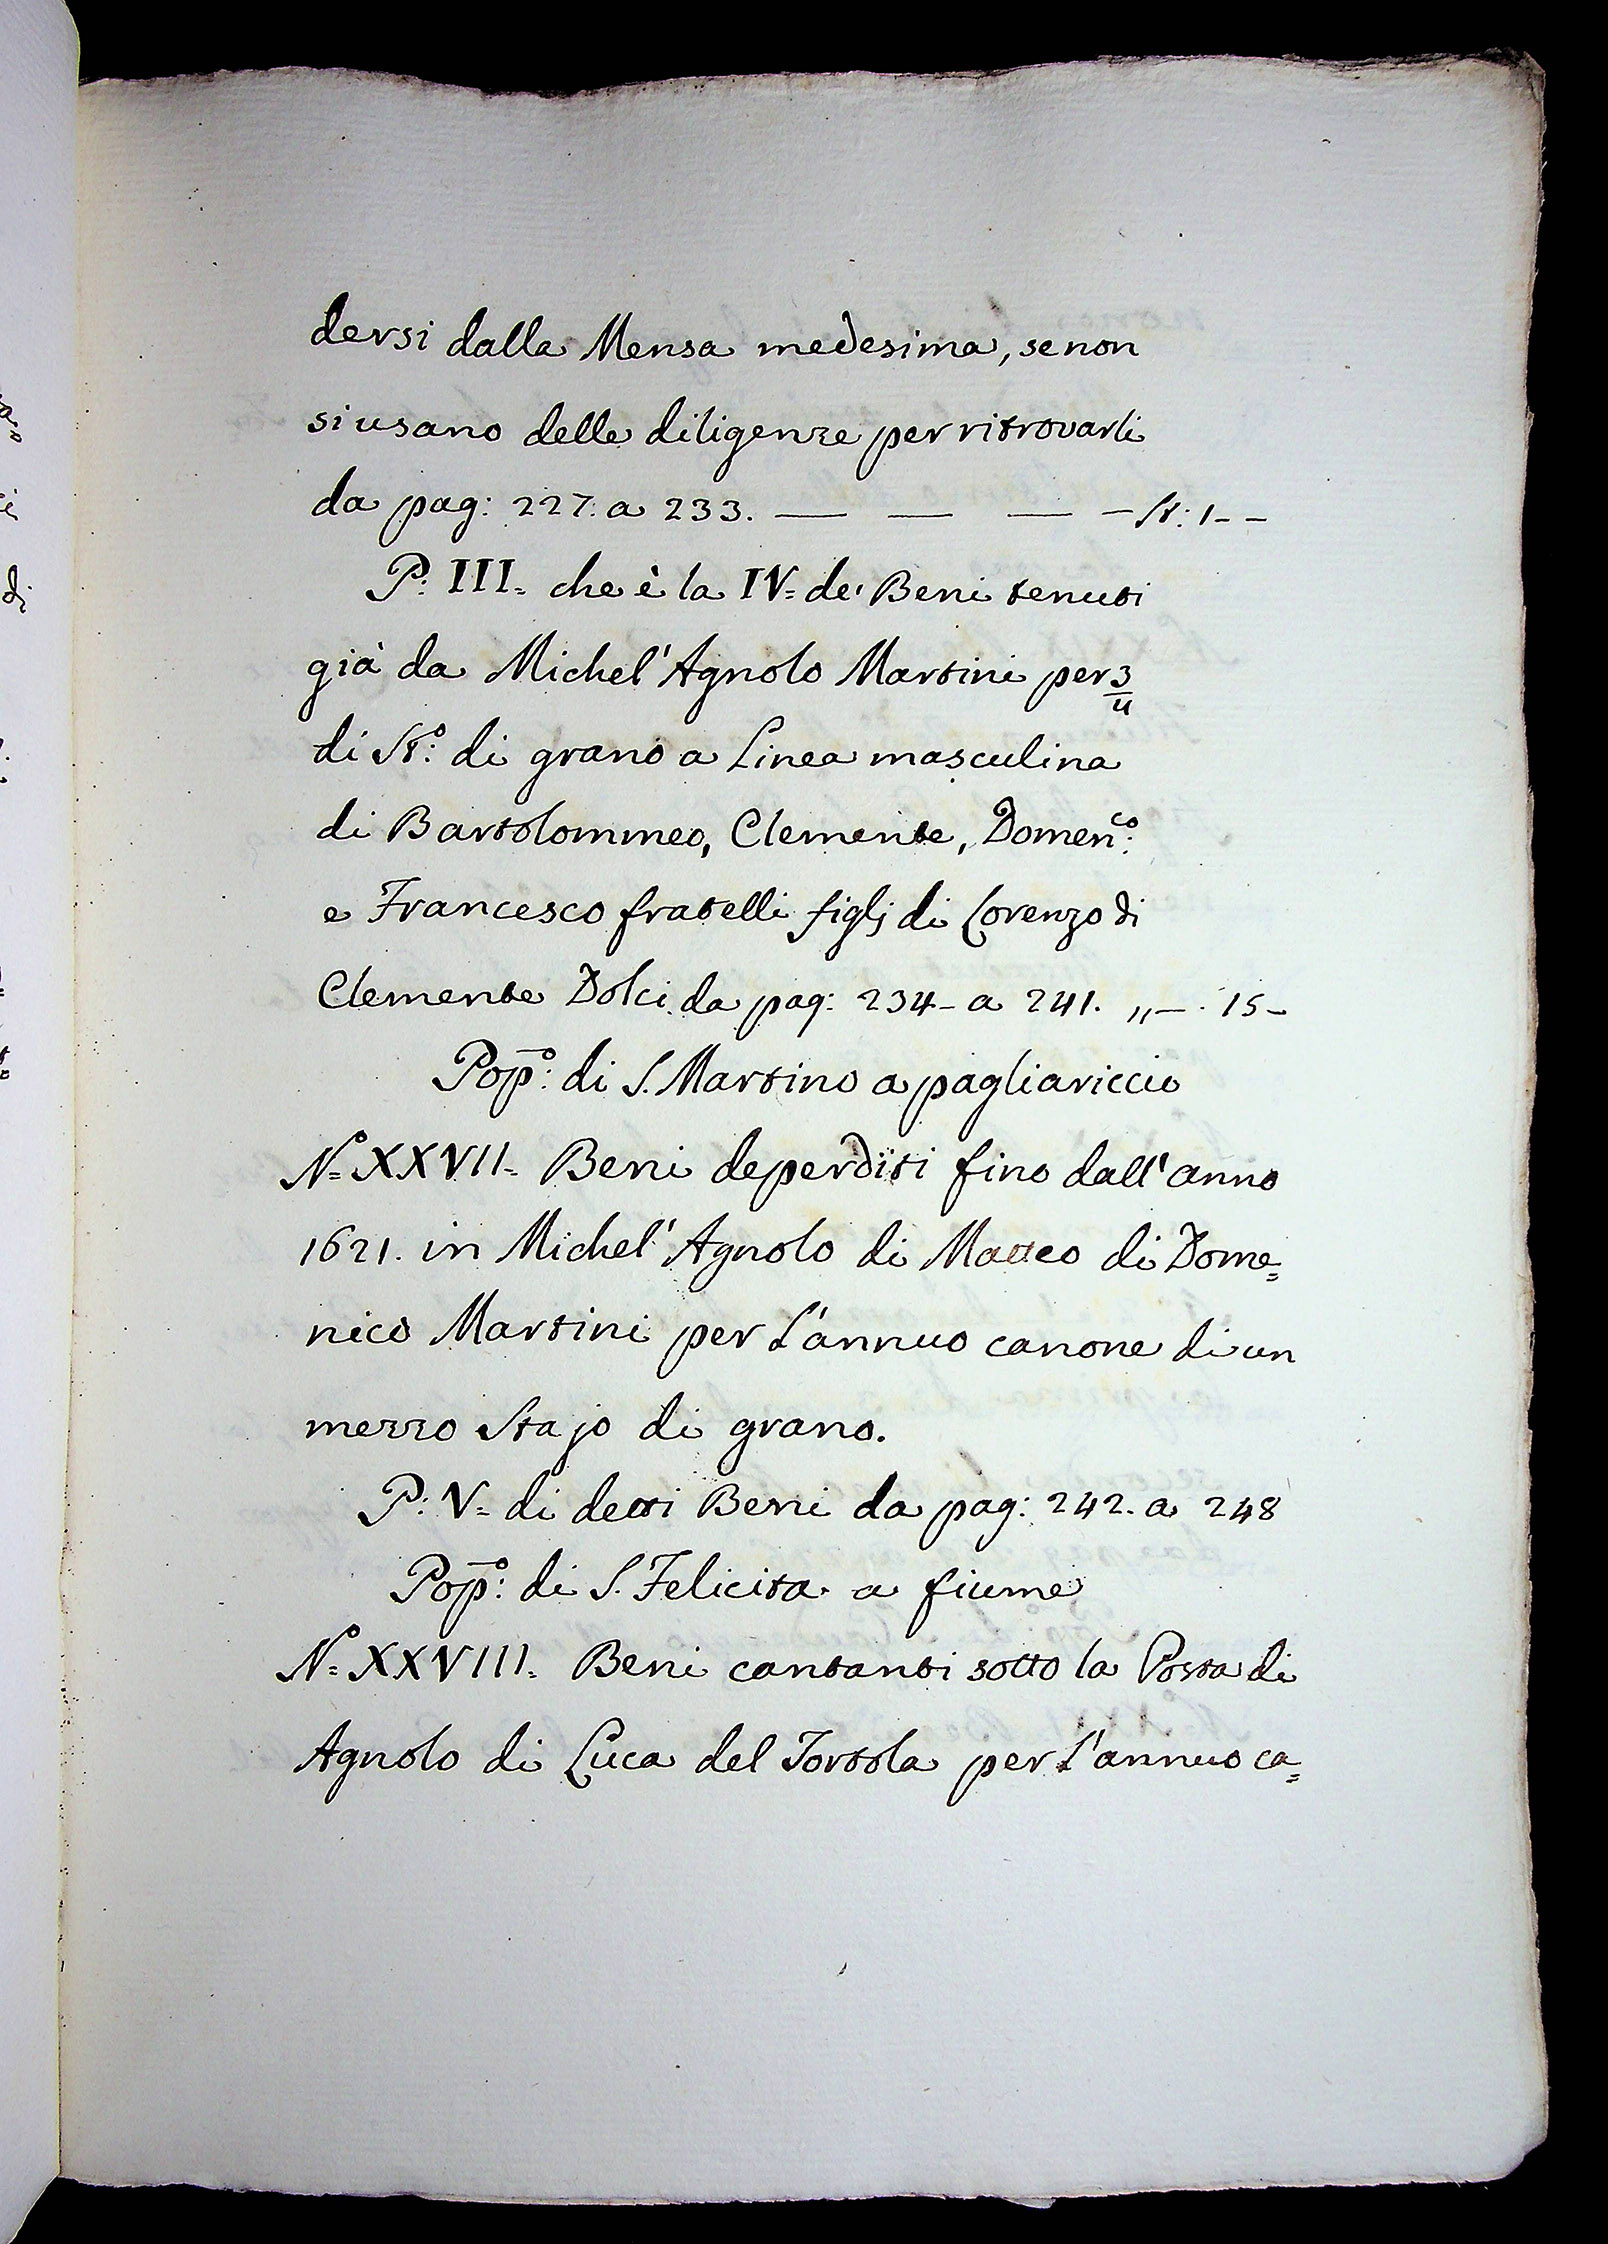 dersi dalla Mensa medesima, se non
si usano delle diligenze per ritrovarli
da pag: 227. a 233. — — — — St: 1 - -
P: III. che è la IV. de' Beni tenuti
già da Michel' Agnolo Martini per 3/4
di St.º: di grano a Linea masculina
di Bartolommeo, Clemente, Domen.co:
e Francesco fratelli figlj di Lorenzo di
Clemente Dolci da pag: 234 - a 241. „ — . 15 -
Pop.º: di S. Martino a pagliariccio
N.º XXVII. Beni deperditi fino dall' anno
1621. in Michel' Agnolo di Matteo di Dome=
nico Martini per l'annuo canone di un
mezzo Stajo di grano.
P: V. di detti Beni da pag: 242. a 248
Pop.º: di S. Felicita a fiume
N.º XXVIII. Beni cantanti sotto la Posta di
Agnolo di Luca del Tortola per l'annuo ca=